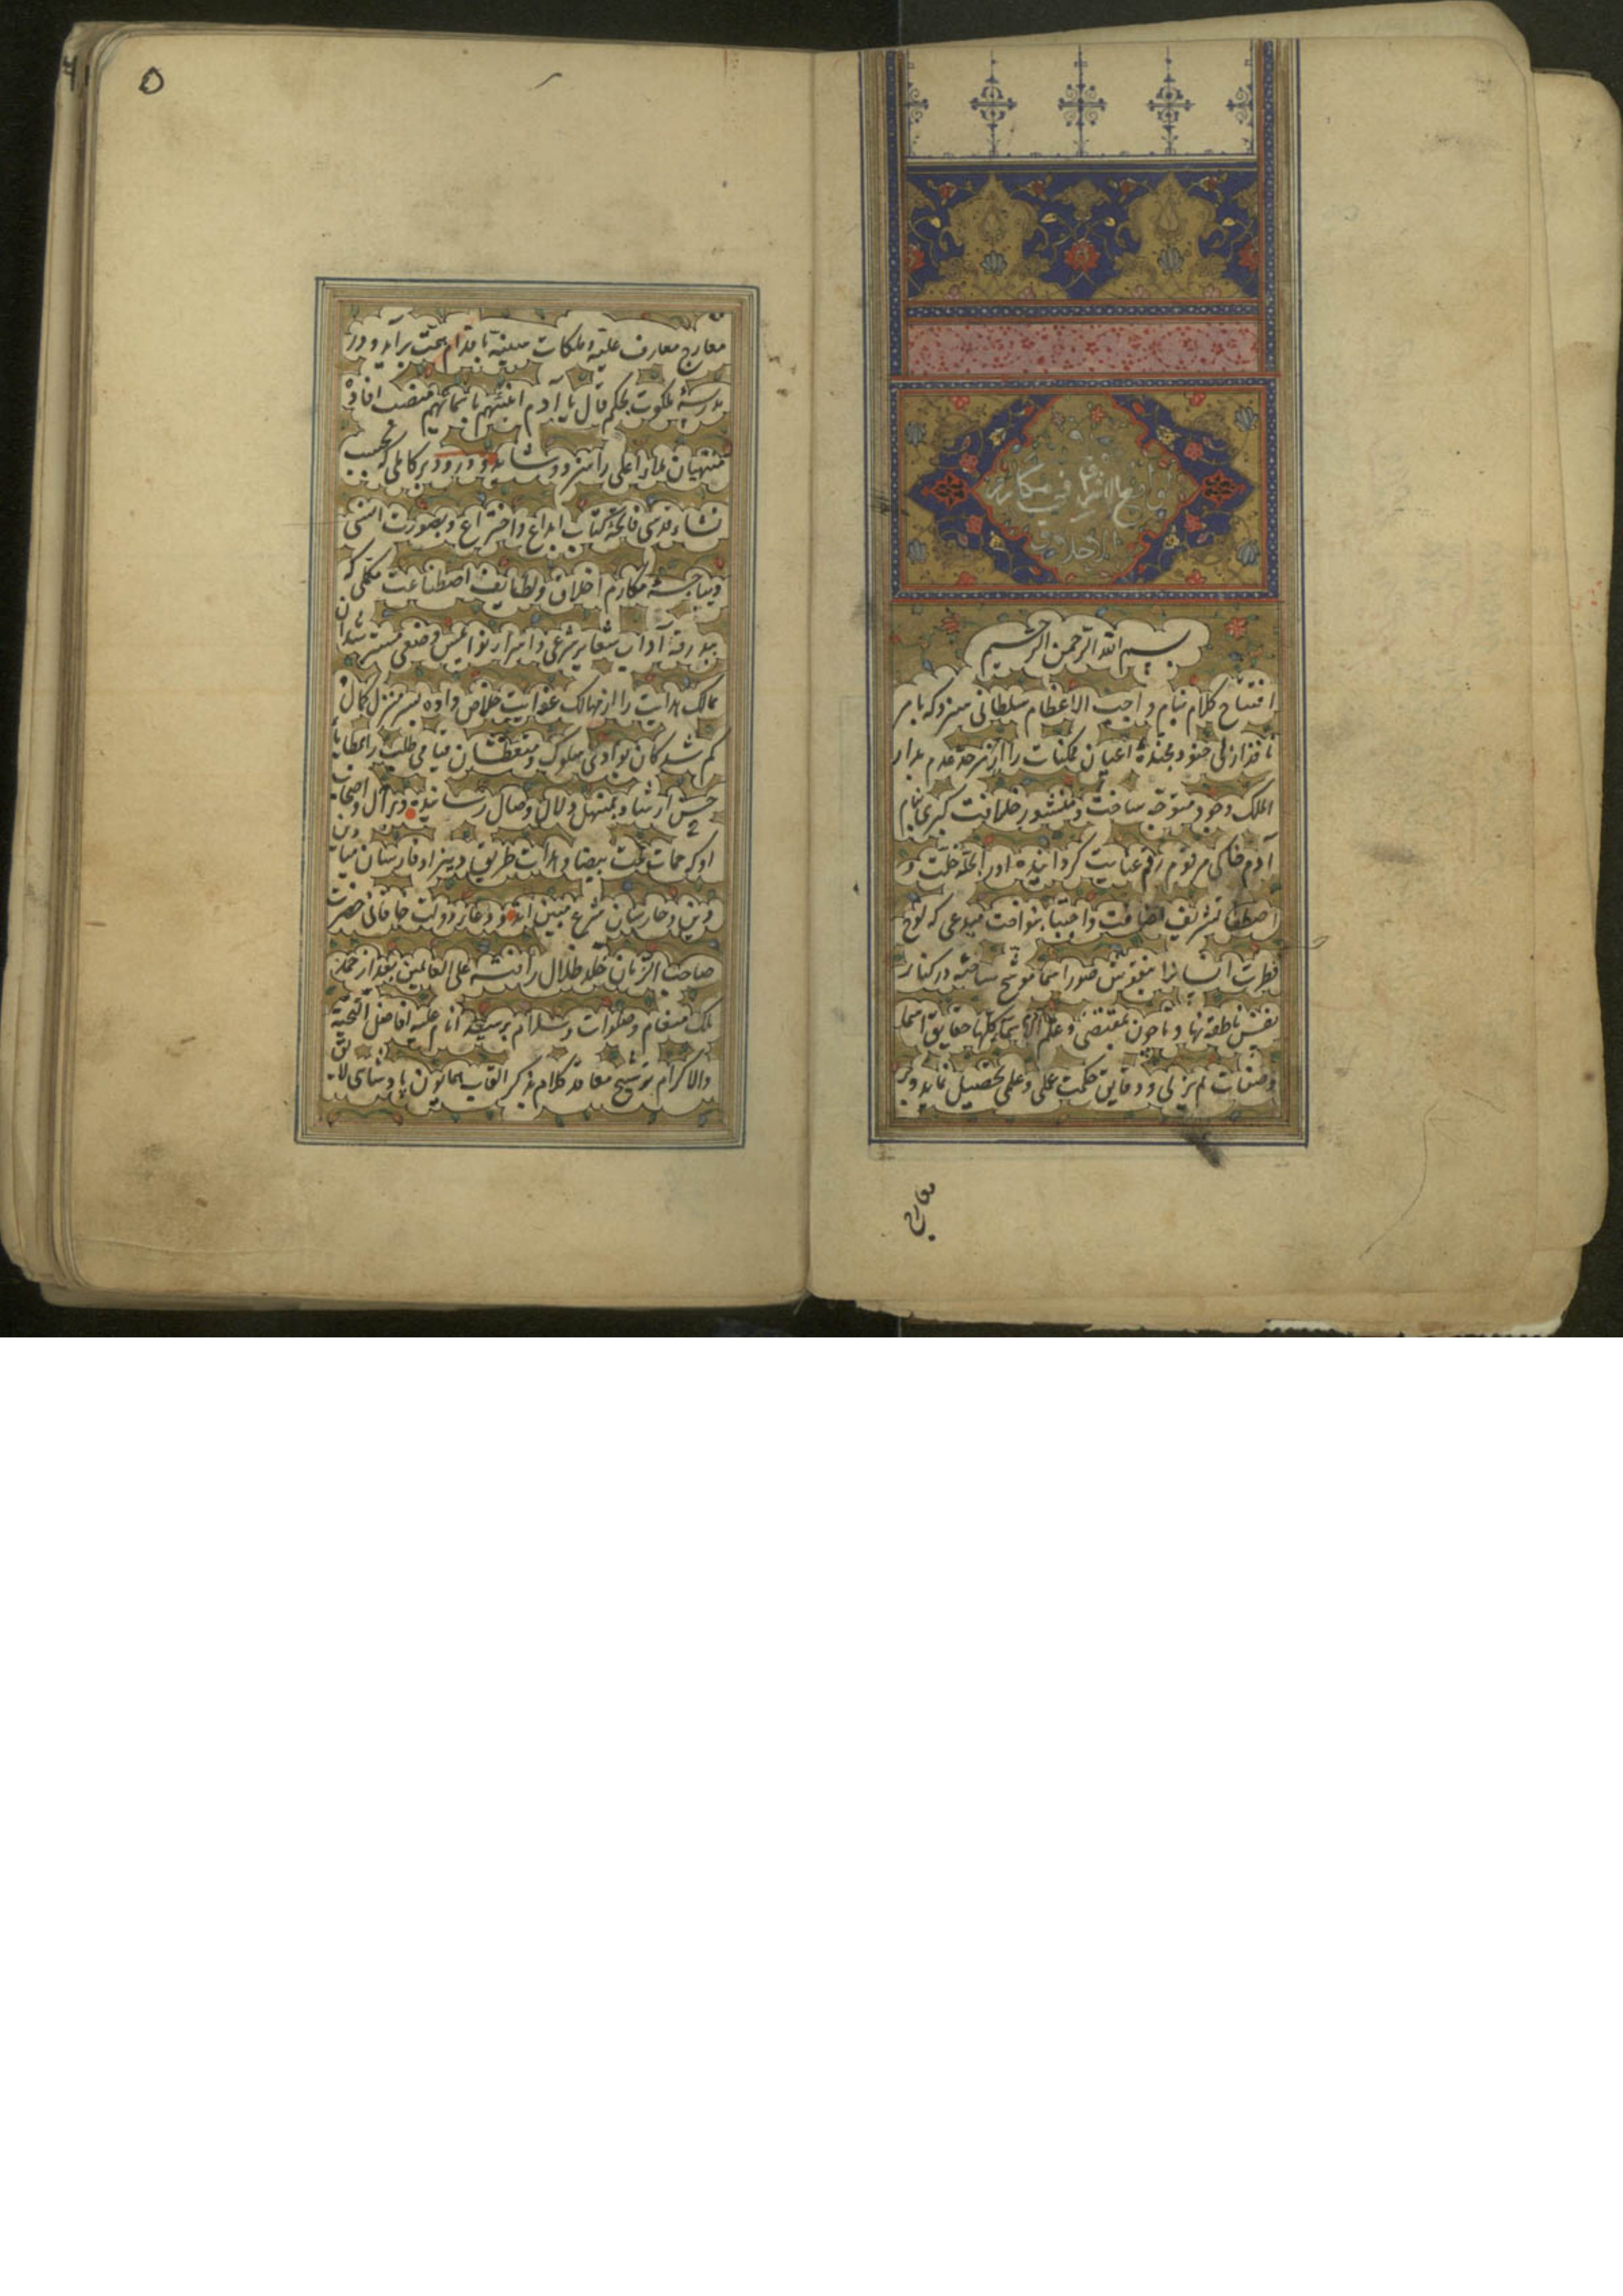 لوامع الاشراق فی مکارم
الاخلاق
بسم الله الرحمن الرحیم
افتتاح کلام بنام واجب الاعظام سلطانی سزد که بامر
نافذ ازلی جنود مجندهٔ اعیان ممکنات را از سرحد عدم بدار
الملک وجود متوجه ساخت و منشور خلافت کبری بنام
آدم خاکی مرقوم رقم عنایت گردانیده اورا بخلعت خلّت و
اصطفا تشریف ضیافت واجتبا بنواخت مبدعی که لوح
فطرت انسانرا بنقوش صور اسما موشح ساخته در کنار
نفس ناطقه نهاد و تا چون بمقتضی و علّم آدم الاسماء کلها حقایق اسما
و صفات لم یزلی و دقایق حکمت عملی و علمی تحصیل نماید و بر
معارج
۵
معارج معارف علیّه و ملکات سنیّه باقدام همت برآید و در
مدرسهٔ ملکوت بحکم قال یا آدم انبئهم باسمائهم منصب افادهٔ
منتهیان ملاء اعلی را سزد و شاید و درود بر کاملی که بحسب
نشاء قدسی فاتحهٔ کتاب ابداع واختراع و بصورت انسی
دیباجهٔ مکارم اخلاق و لطایف اصطناعست مکملی که
ببدرقهٔ آداب شعایر شرعی و اسرار نوامیس وضعی مسترشدان
ممالک هدایت را از مهالک غوایت خلاص داده بسرمنزل کمال
گم شدکان بوادی سلوک و متعطشان فیافی طلب را بمطایا
حسن ارشاد بمنهل زلال وصال رسانیده و بر آل و اصحاب
او که حمات ملت بیضا و هدات طریق دین زاد فارسان میادین
دین و حارسان شرع مبین اند و دعا دولت خاقانی حضرت
صاحب الزمان خلد ظلال رافته علی العالمین بعد از حمد
ملک منعام و صلوات و سلام بر سید انام علیه افاضل التحیة
والاکرام توشیح معاقد کلام بذکر القاب همایون پادشاهی لایق